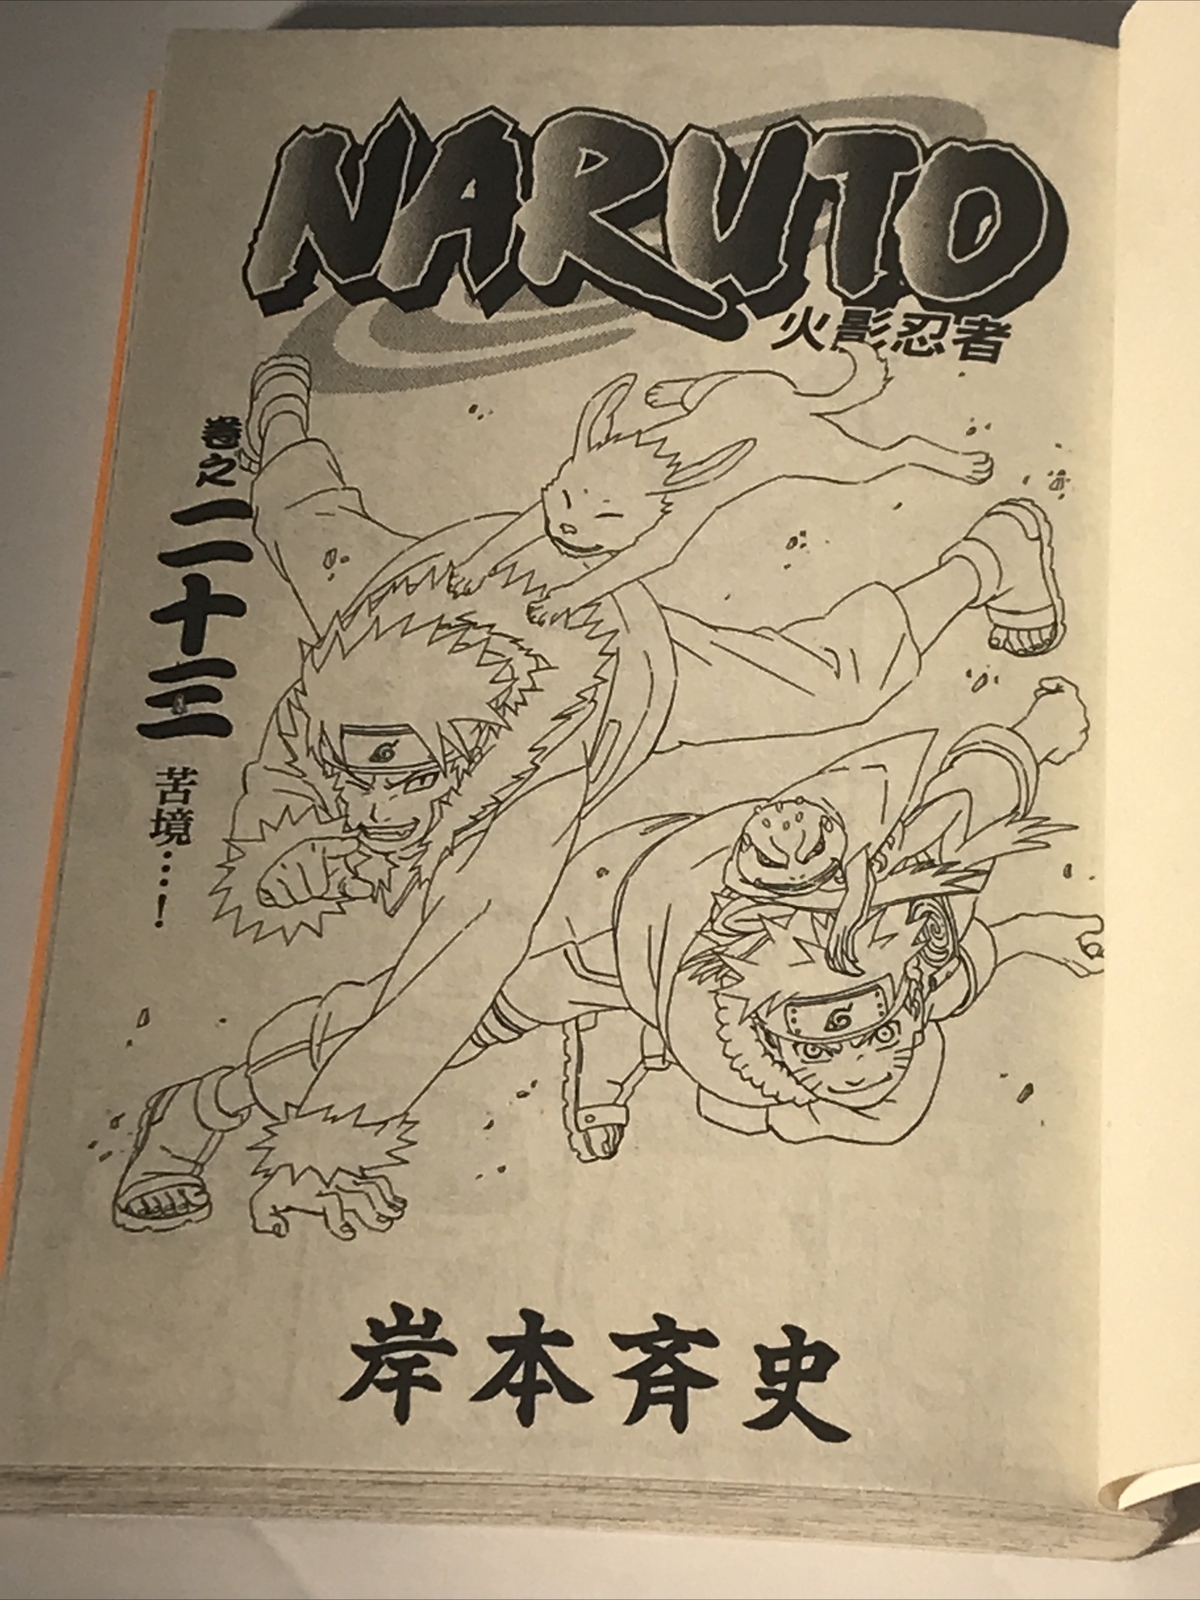 NARUTO
火影忍者
卷之二十三
苦境…!
岸本斉史